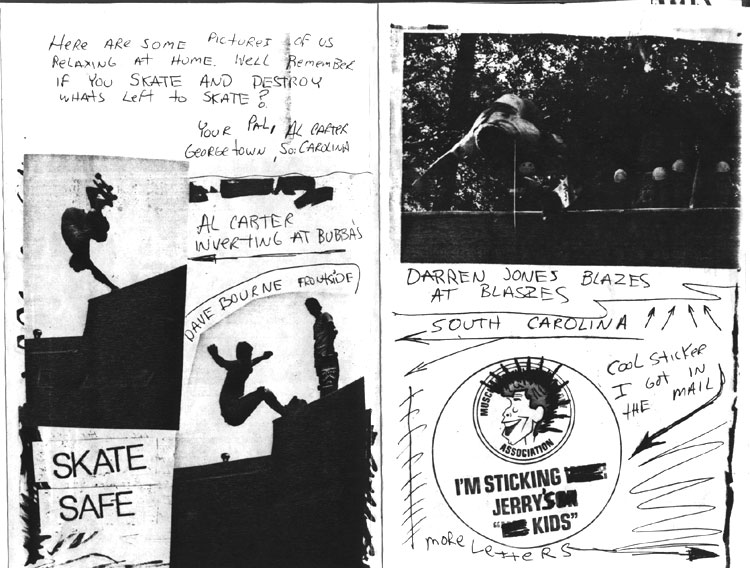 HERE ARE SOME PICTURES OF US
RELAXING AT HOME. WELL REMEMBER
IF YOU SKATE AND DESTROY
WHATS LEFT TO SKATE?
YOUR PAL, AL CARTER
GEORGETOWN, SO. CAROLINA
AL CARTER
INVERTING AT BUBBA'S
DAVE BOURNE FRONTSIDE
SKATE
SAFE
DARREN JONES BLAZES
AT BLASZES
SOUTH CAROLINA
COOL STICKER
I GOT IN
THE MAIL
MUSC
ASSOCIATION
I'M STICKING
JERRY'S
" KIDS"
MORE LETTERS